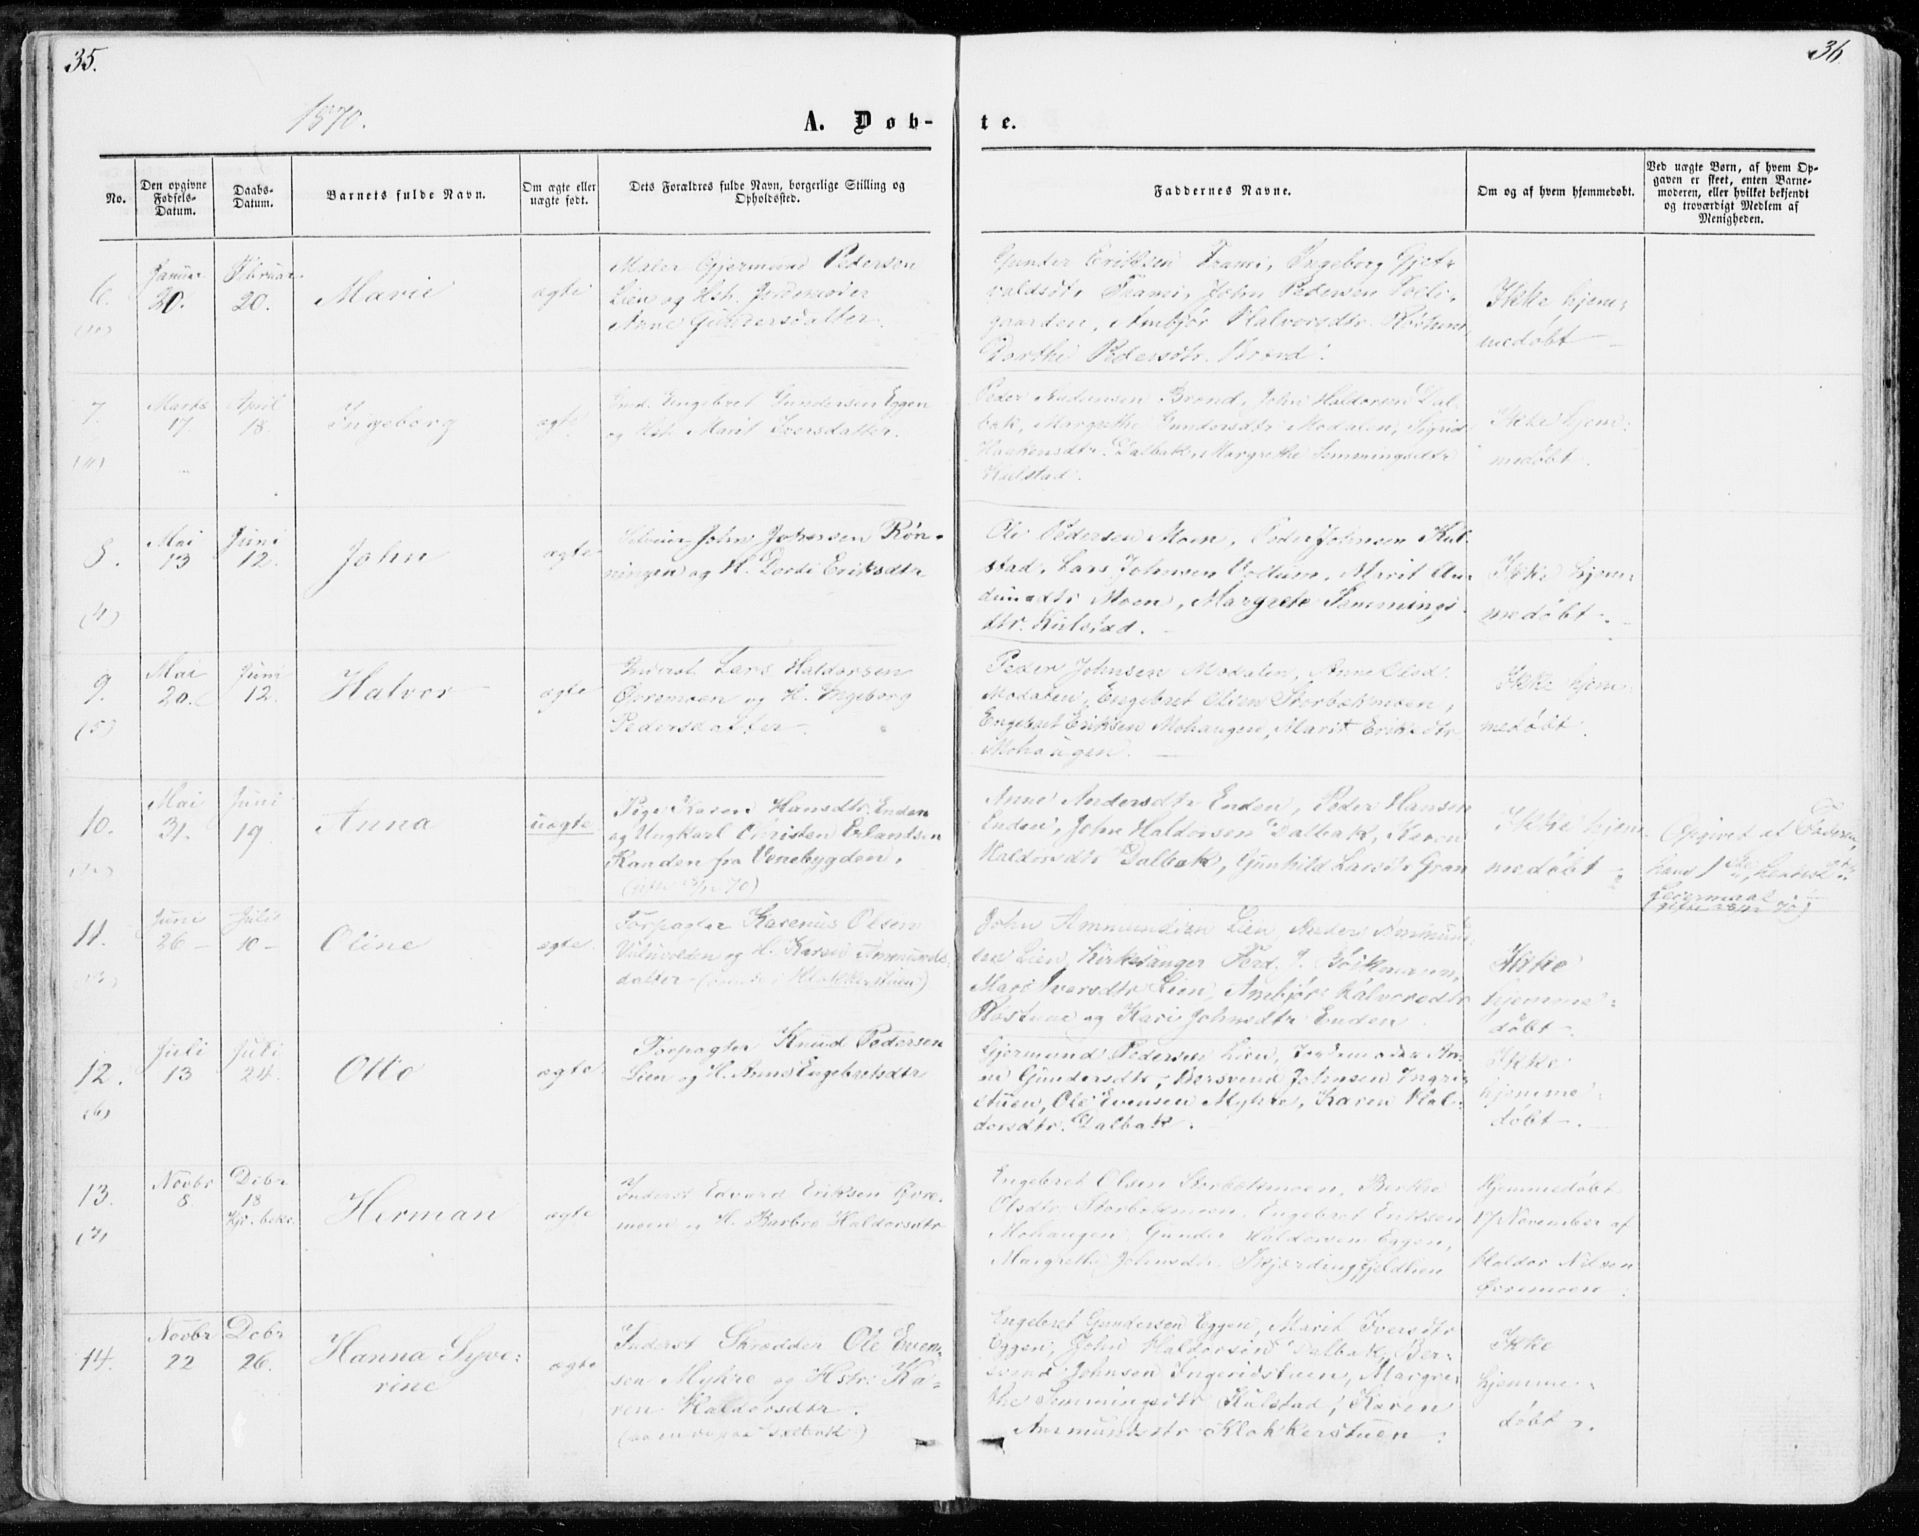 35.
36
1870.
A. Døb-
te.
No.
Den opgivne
Fødsels-
Datum.
Daabs-
Datum.
Barnets fulde Navn.
Om ægte eller
uægte født.
Dets Forældres fulde Navn, borgerlige Stilling og
Opholdssted.
Faddernes Navne.
Om og af hvem hjemmedøbt.
Ved uægte Børn, af hvem Op-
gaven er skeet, enten Barne-
moderen, eller hvilket bekjendt
og troværdigt Medlem af
Menigheden.
6.
Januar
20.
Februar
20.
Marie
ægte
Maler Gjermund Pedersen
Lien og Hst. Jordemoder
Anne Gundersdatter.
Gunder Eriksen Trami, Ingeborg Gjet-
valdsdtr Trami, John Pedersen
gaarden, Ambjør Halvorsdtr.
Dorthe Pedersdtr. Brænd.
Ikke hjem-
medøbt
7.
Marts
17
April
18.
Ingeborg
ægte
Engebret Gundersen Eggen
og Hst. Marit Iversdatter.
Peder Audunsen Brænd, John Haldorsen Dal-
bak, Margrethe Gundersdtr Modalen, Sigrid
Haakensdtr. Dalbak, Margrethe Semmingsdtr
Kulstad.
Ikke hjem-
medøbt.
8.
(4)
Mai
13
Juni
12.
John
ægte
John Johnsen Røn-
ningen og H. Dorte Eriksdtr
Ole Pedersen Moen, Peder Johnsen Kul-
stad, Lars Johnsen Vollum, Marit Au-
dunsdtr Moen, Margrete Semmings-
dtr. Kulstad.
Ikke hjem-
medøbt
9.
(5)
Mai
20.
Juni
12.
Halvor
ægte
Inderst Lars Haldorsen
Øvremoen og H. Ingeborg
Pedersdatter
Peder Johnsen Modalen, Anne Olsd.
Modalen, Engebret Olsen Storbækmoen,
Engebret Eriksen Mohaugen, Marit Eriksdtr
Mohaugen.
Ikke hjem-
medøbt.
10.
Mai
31.
Juni
19.
Anna
uægte
Pige Karen Hansdtr. Enden
og Ungkarl Christen Erlandsen
Kanden fra Venebygden.
Anne Andersdtr Enden, Peder Hansen
Enden, John Haldorsen Dalbak, Karen
Haldorsdtr Dalbak, Gunhild Larsdtr Gran
Ikke hjem-
medøbt
Opgivet af Faderen,
hans 1ste, hendes 2det
Leiermaal
11.
Juni
26
Juli
10
Oline
ægte
Forpagter Karenus Olsen
Vulnvolden og H. Karen Ammunds-
datter (Klokkerstuen)
John Ammundsen Lien, Peder Ammund-
sen Lien, Kirkesanger Ferd. Böckmann,
Mari Iversdtr Lien, Ambjør Halvorsdtr
og Kari Johnsdtr Enden
Ikke
hjemme-
døbt.
12.
(6)
Juli
13
Juli
24.
Otto
ægte
Forpagter Knud Pedersen
Lien og H. Anne Engebretsdtr
Gjermund Pedersen Lien, Jordemoder An-
ne Gundersdtr, Bersvend Johnsen Ingri-
stuen, Ole Evensen Mykre, Karen Hal-
dorsdtr. Dalbak.
Ikke
hjemme-
døbt.
13.
Novbr
8
Decbr
18
Herman
ægte
Inderst Edvard Eriksen Øvre-
moen og H. Barbro Haldorsdtr
Engebret Olsen Storbækmoen, Berthe
Olsdtr. Storbækmoen, Engebret Eriksen
Mohaugen, Gunder Haldorsen Eggen,
Margrethe Johnsdtr. Skjærdingfjeldlien
Hjemmedøbt
17 November af
Haldor Nilsen
Øvremoen.
14.
Novbr
22
Decbr
26.
Hanna Syve-
rine
ægte
Inderst Skrædder Ole Even-
sen Mykre og Hstr. Ka-
ren Haldorsdtr.
Engebret Gundersen Eggen, Marit Iversdtr
Eggen, John Haldorsen Dalbak, Ber-
svend Johnsen Ingeridstuen, Margre-
the Semmingsdtr Kulstad, Karen
Ammundsdtr Klokkerstuen.
Ikke
hjemme-
døbt.